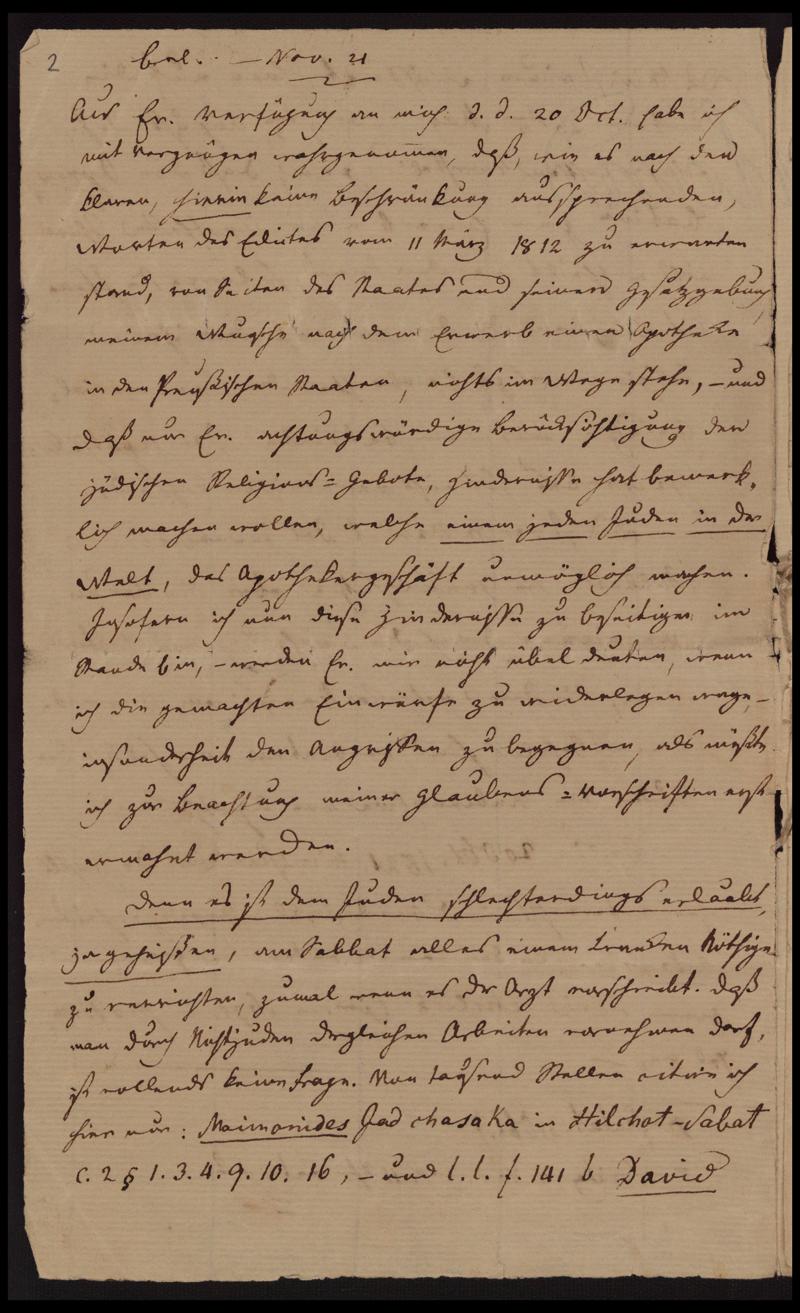 2
Berl. – Nov. 21
Aus Ew. Verfügung an mich d. d. 20 Oct. habe ich
mit Vergnügen wahrgenommen, daß, wie es nach den
klaren, hierin keine Beschränkung aussprechenden,
Worten des Edictes vom 11 März 1812 zu erwarten
stand, von Seiten des Staates und seiner Gesetzgebung,
meinem Wunsche nach dem Erwerb einer Apotheke
in den Preußischen Staaten, nichts im Wege stehe, – und
daß nur Ew. achtungswürdige Berücksichtigung der
jüdischen Religions=Gebote, Hindernisse hat bemerk-
lich machen wollen, welche einem jeden Juden in der
Welt, das Apothekergeschäft unmöglich machen.
Insofern ich nun diese Hindernisse zu beseitigen im
Stande bin, – werden Ew. mir nicht übel deuten, wenn
ich die gemachten Einwürfe zu widerlegen wage, –
insonderheit den Angriffen zu begegnen, als müßte
ich zur Beachtung meiner Glaubens=Vorschriften erst
ermahnt werden.
Denn es ist dem Juden schlechterdings erlaubt,
ja geheißen, am Sabbat alles einem Kranken Nöthige
zu verrichten, zumal wenn es der Arzt vorschreibt. Daß
man durch Nichtjuden dergleichen Arbeiten vornehmen darf,
ist vollends keine Frage. Von tausend Stellen citire ich
hier nur: Maimonides Jad chasaka in Hilchot-Sabat
c. 2 § 1. 3. 4. 9. 10. 16, – und l. l. f. 141 b David